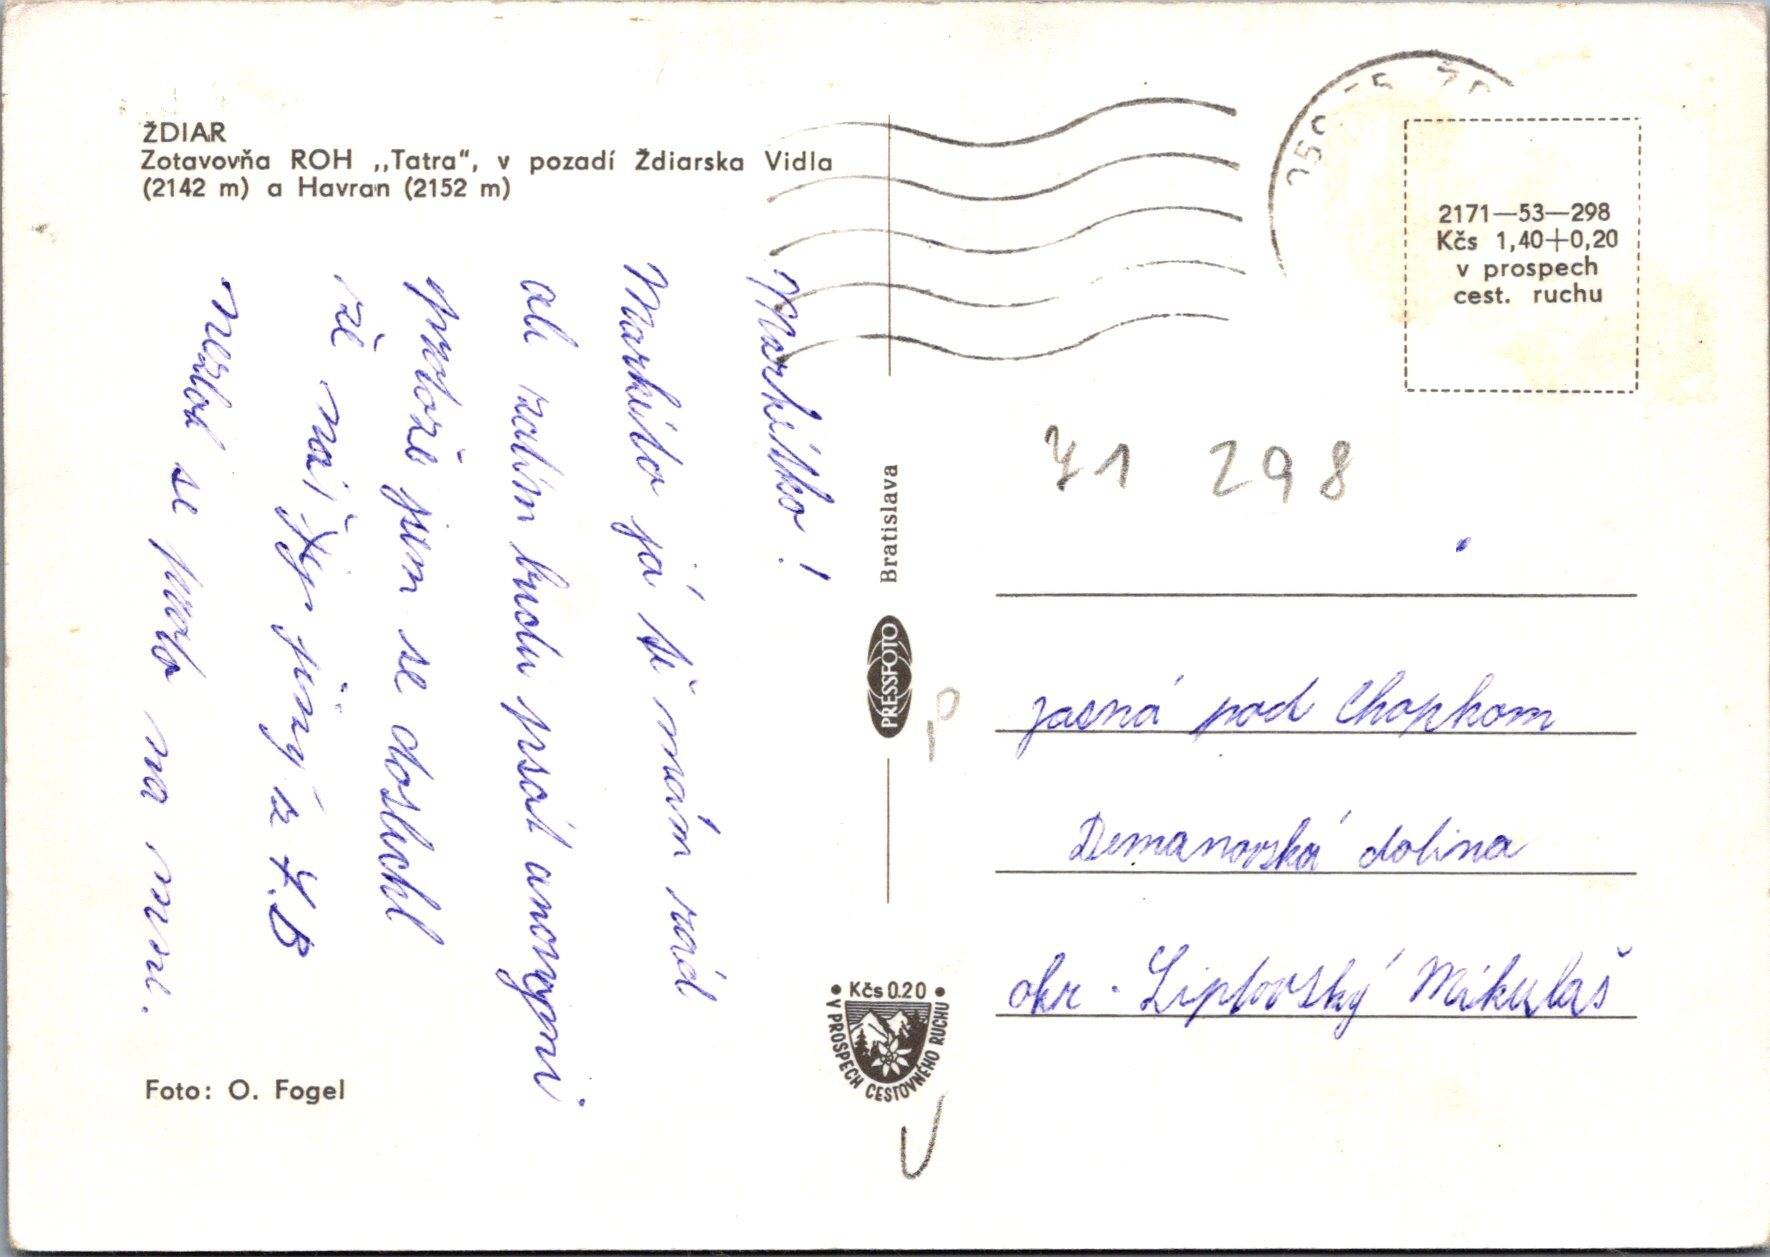 ŽDIAR
Zotavovňa ROH „Tatra“, v pozadí Ždiarska Vidla
(2142 m) a Havran (2152 m)
Markétko!
Markéto já tě mám rád
ale zatím budu psát anonymně
protože jsem se doslechl
že máš jiný z 4.B
nezlob se proto na mne.
Foto: O. Fogel
Bratislava
PRESSFOTO
• Kčs 0.20 •
V PROSPECH CESTOVNÉHO RUCHU
2171—53—298
Kčs 1,40+0,20
v prospech
cest. ruchu
71 298
Jasná pod Chopkom
Demanovská dolina
okr. Liptovský Mikulaš